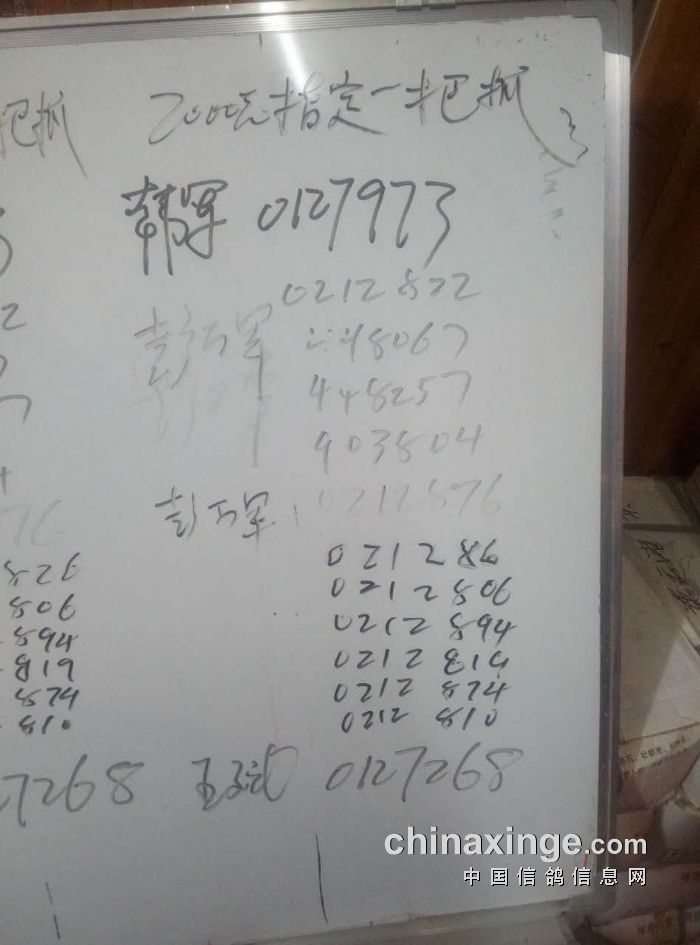 把抓 2000元指定一把抓
韩军 0127973
2 0212822
彭万军 448067
7 448257
903804
76 彭万军 0212876
826 021286
806 0212806
894 0212894
819 0212819
874 0212874
810 0212810
7268 王斌 0127268
chinaxinge.com
中国信鸽信息网